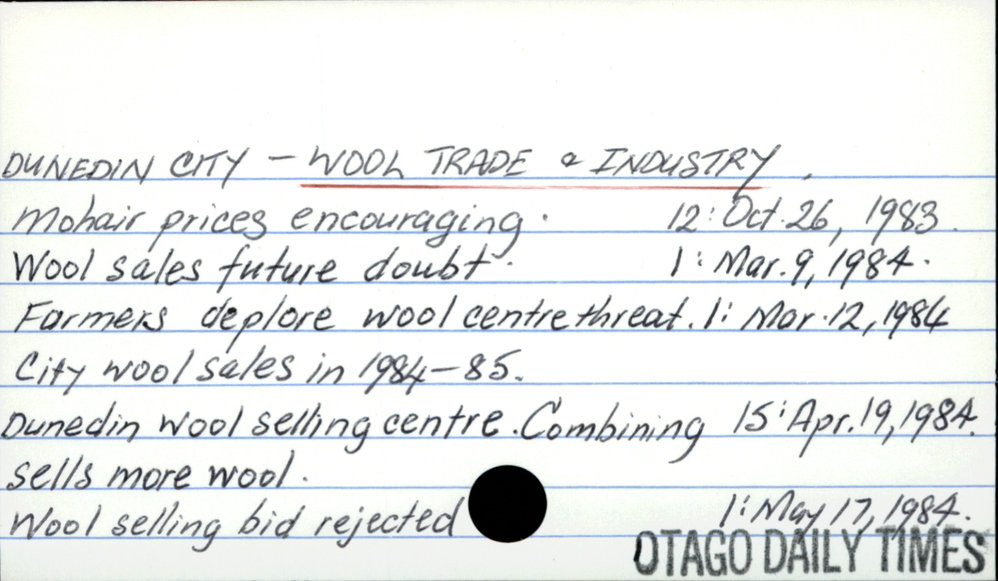 DUNEDIN CITY – WOOL TRADE & INDUSTRY.
Mohair prices encouraging. 12: Oct. 26, 1983.
Wool sales future doubt. 1: Mar. 9, 1984.
Farmers deplore wool centre threat. 1: Mar. 12, 1984
City wool sales in 1984–85.
Dunedin wool selling centre. Combining 15: Apr. 19, 1984.
sells more wool.
Wool selling bid rejected 1: May 17, 1984.
OTAGO DAILY TIMES